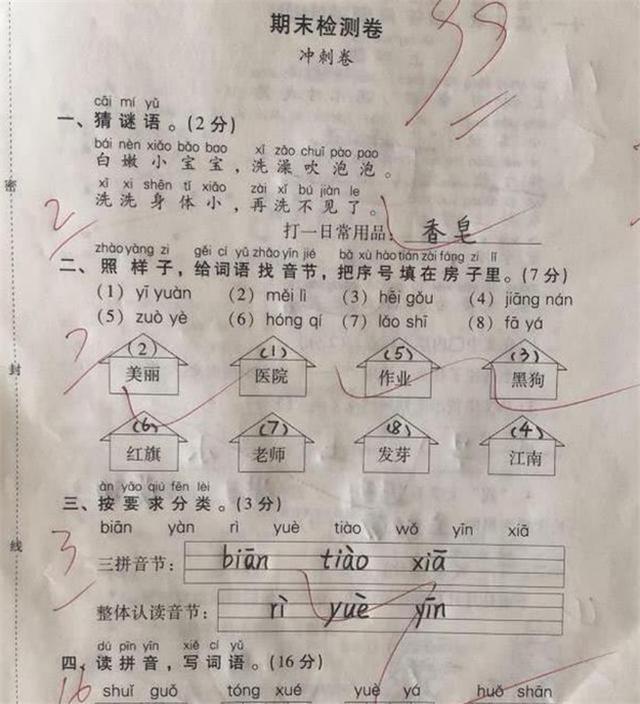 期末检测卷
99
冲刺卷
cāi mí yǔ
一、猜谜语。(2分)
bái nèn xiǎo bǎo bao xǐ zǎo chuī pào pao
白嫩小宝宝,洗澡吹泡泡。
xǐ xi shēn tǐ xiǎo zài xǐ bú jiàn le
洗洗身体小,再洗不见了。
2
打一日常用品:香皂
zhào yàng zi gěi cí yǔ zhǎo yīn jié bǎ xù hào tián zài fáng zi lǐ
二、照样子,给词语找音节,把序号填在房子里。(7分)
(1) yī yuàn (2) měi lì (3) hēi gǒu (4) jiāng nán
(5) zuò yè (6) hóng qí (7) lǎo shī (8) fā yá
7
(2) (1) (5) (3)
美丽 医院 作业 黑狗
(6) (7) (8) (4)
红旗 老师 发芽 江南
àn yāo qiú fēn lèi
三、按要求分类。(3分)
biān yàn rì yuè tiào wǒ yīn xiā
3
三拼音节: biān tiào xiā
整体认读音节: rì yuè yīn
dú pīn yīn xiě cí yǔ
四、读拼音,写词语。(16分)
16
shuǐ guǒ tóng xué yuè yá huǒ shān
密
封
线